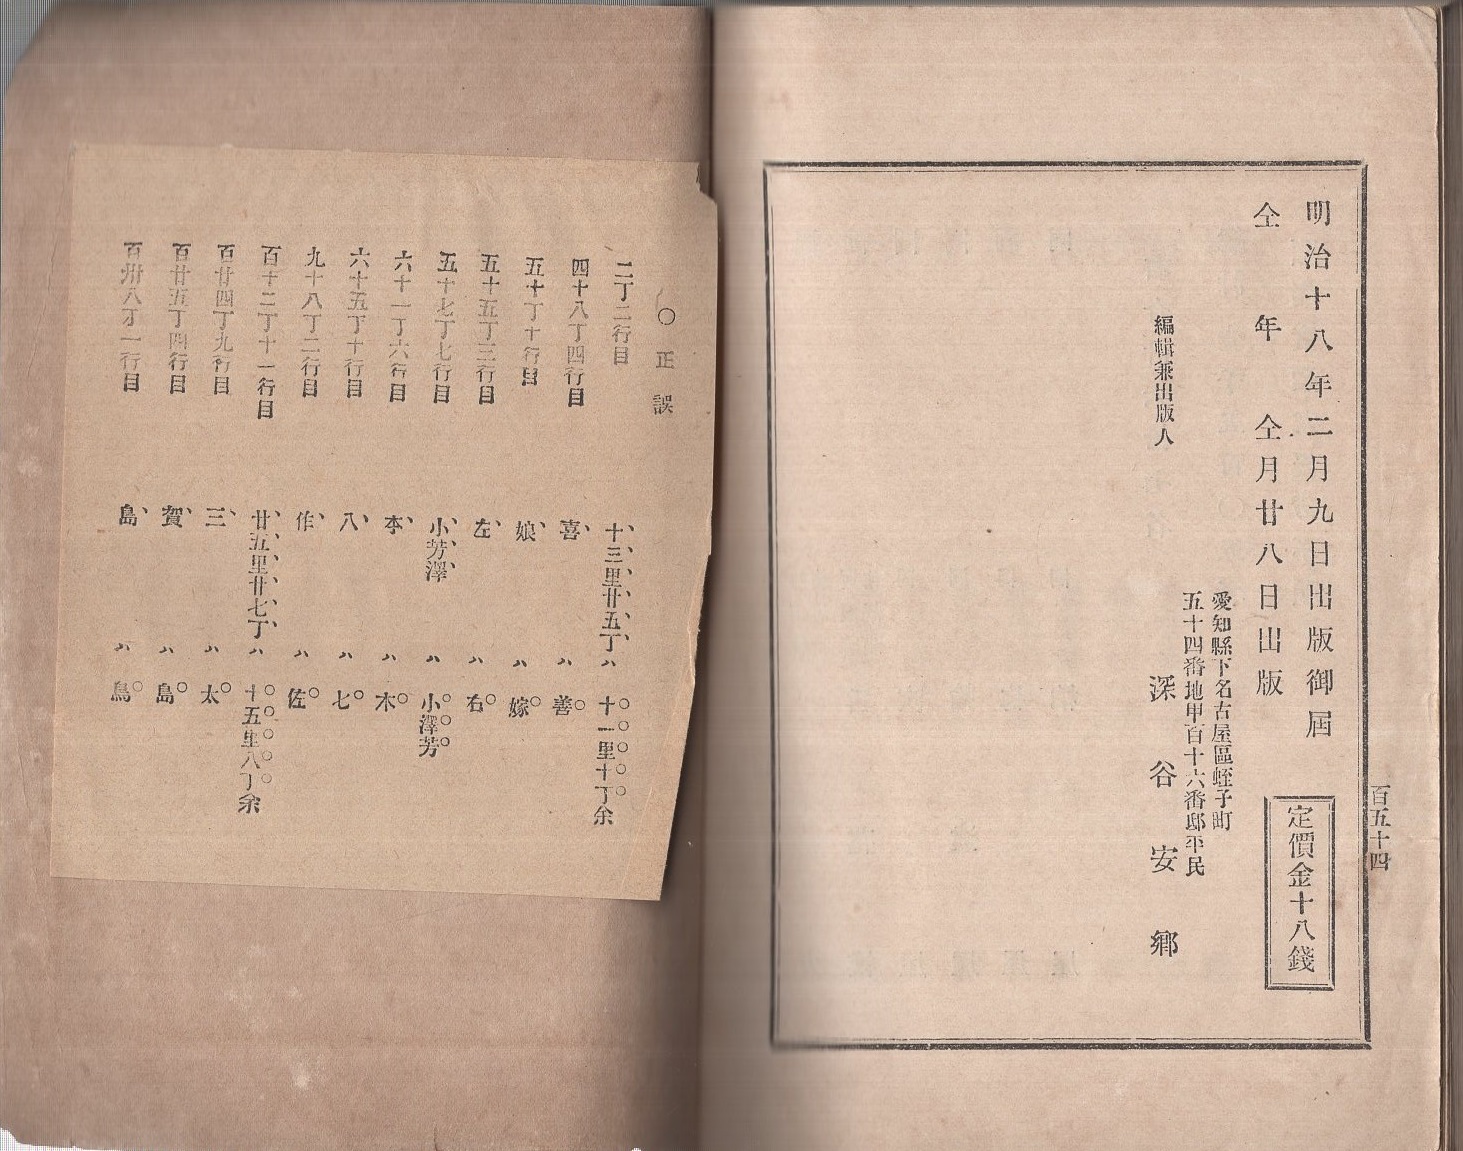 明治十八年二月九日出版御屆
仝年仝月廿八日出版
定價金十八錢
愛知縣下名古屋區蛭子町
五十四番地甲百十六番邸平民
編輯兼出版人
深谷安鄕
百五十四
○正誤
二丁二行目 十三里廿五丁ハ十一里十丁余
四十八丁四行目 喜ハ善
五十丁十行目 娘ハ嫁
五十五丁三行目 左ハ右
五十七丁七行目 小芳澤ハ小澤芳
六十一丁六行目 李ハ木
六十五丁十行目 八ハ七
九十八丁二行目 作ハ佐
百十二丁十一行目 廿五里廿七丁ハ十五里八丁余
百廿四丁九行目 三ハ太
百廿五丁四行目 賀ハ島
百卅八丁一行目 島ハ鳥